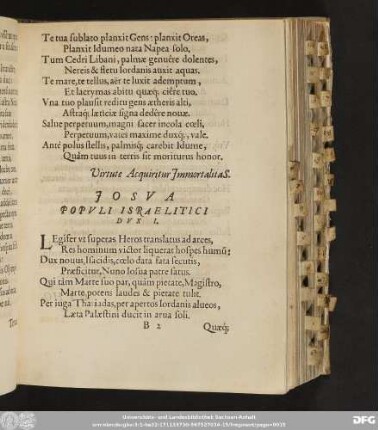 Te tua sublato planxit Gens: planxit Oreas,
Planxit Idumeo nata Napea solo,
Tum Cedri Libani, palmæ genuêre dolentes,
Nereis & fletu Iordanis auxit aquas.
Te mare, te tellus, aër te luxit ademptum,
Et lacrymas abitu quæq́; ciêre tuo.
Vna tuo plausit reditu gens ætheris alti,
Astraq́; lætitiæ signa dedêre nouæ.
Salue perpetuum, magni sacer incola cœli,
Perpetuum, vates maxime duxq́;, vale.
Antè polus stellis, palmisq́; carebit Idume,
Quàm tuus in terris sit moriturus honor.
Virtute Acquiritur JmmortalitaS.
JOSVA
POPVLI ISRAELITICI
DVX I.
LEgifer vt superas Heros translatus ad arces,
Res hominum victor liquerat hospes humũ;
Dux nouus, Isacidis, cœlo data fata secutis,
Præficitur, Nuno Iosua patre satus.
Qui tàm Marte suo par, quàm pietate, Magistro,
Marte potens laudes & pietate tulit.
Per iuga, per apertos Iordanis alueos,
Læta Palæstini ducit in arua soli.
B 2 Quæq́;
Universitäts- und Landesbibliothek Sachsen-Anhalt
DFG